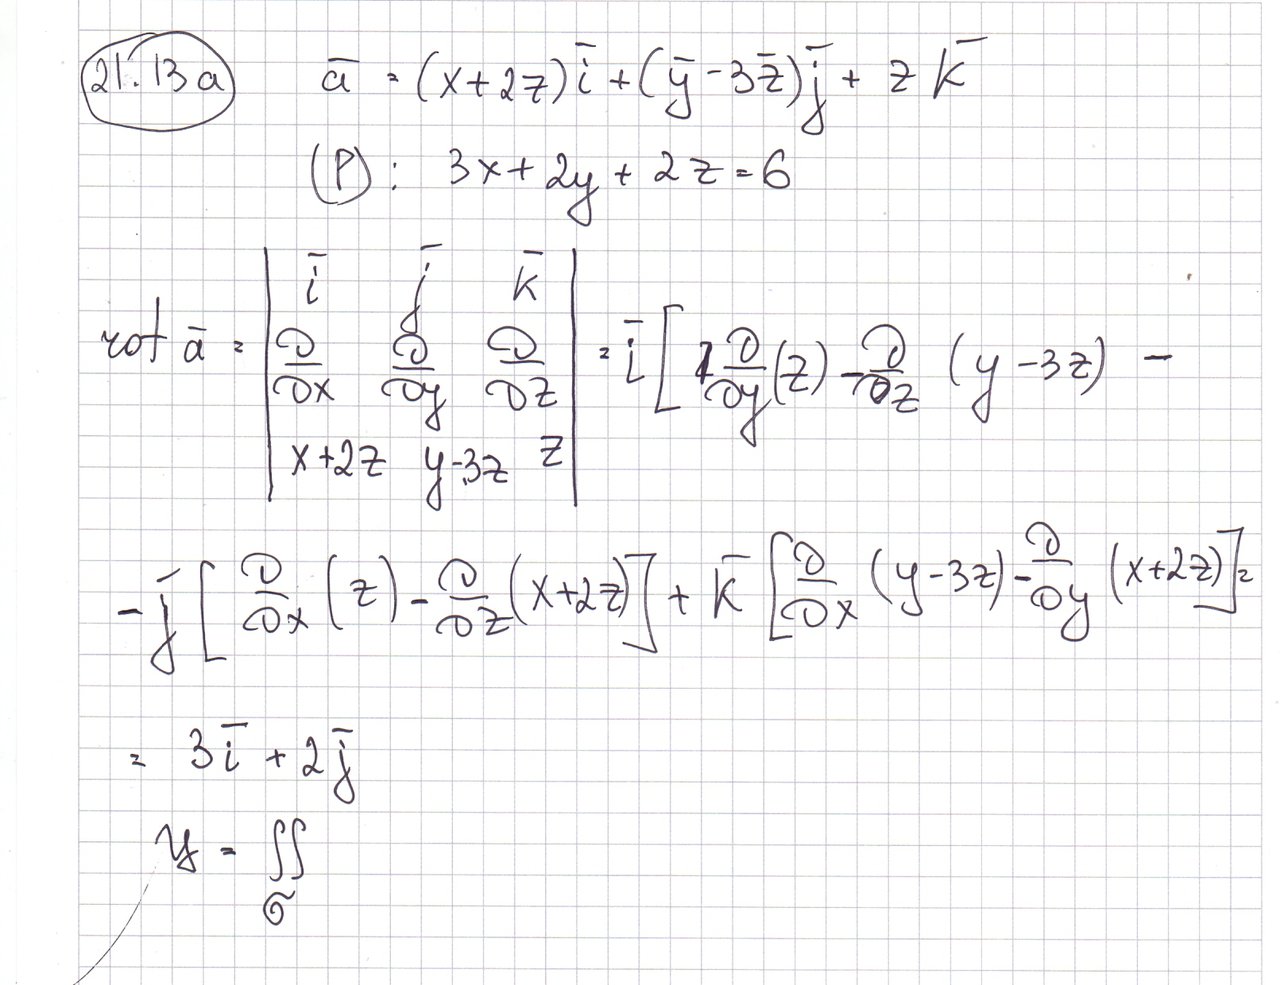 21.13a a̅ = (x+2z)i̅ + (y̅-3z̅)j̅ + z k̅
(P): 3x+2y+2z=6
rot a̅ = | i̅ j̅ k̅ |
| ∂/∂x ∂/∂y ∂/∂z | = i̅ [ ∂/∂y (z) - ∂/∂z (y-3z) -
| x+2z y-3z z |
- j̅ [ ∂/∂x (z) - ∂/∂z (x+2z) ] + k̅ [ ∂/∂x (y-3z) - ∂/∂y (x+2z) ] =
= 3i̅ + 2j̅
У = ∬
σ